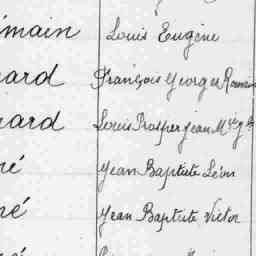 main Louis Eugène
ard François Georges Romain
nard Louis Prosper Jean M
ré Jean Baptiste Léon
né Jean Baptiste Victor